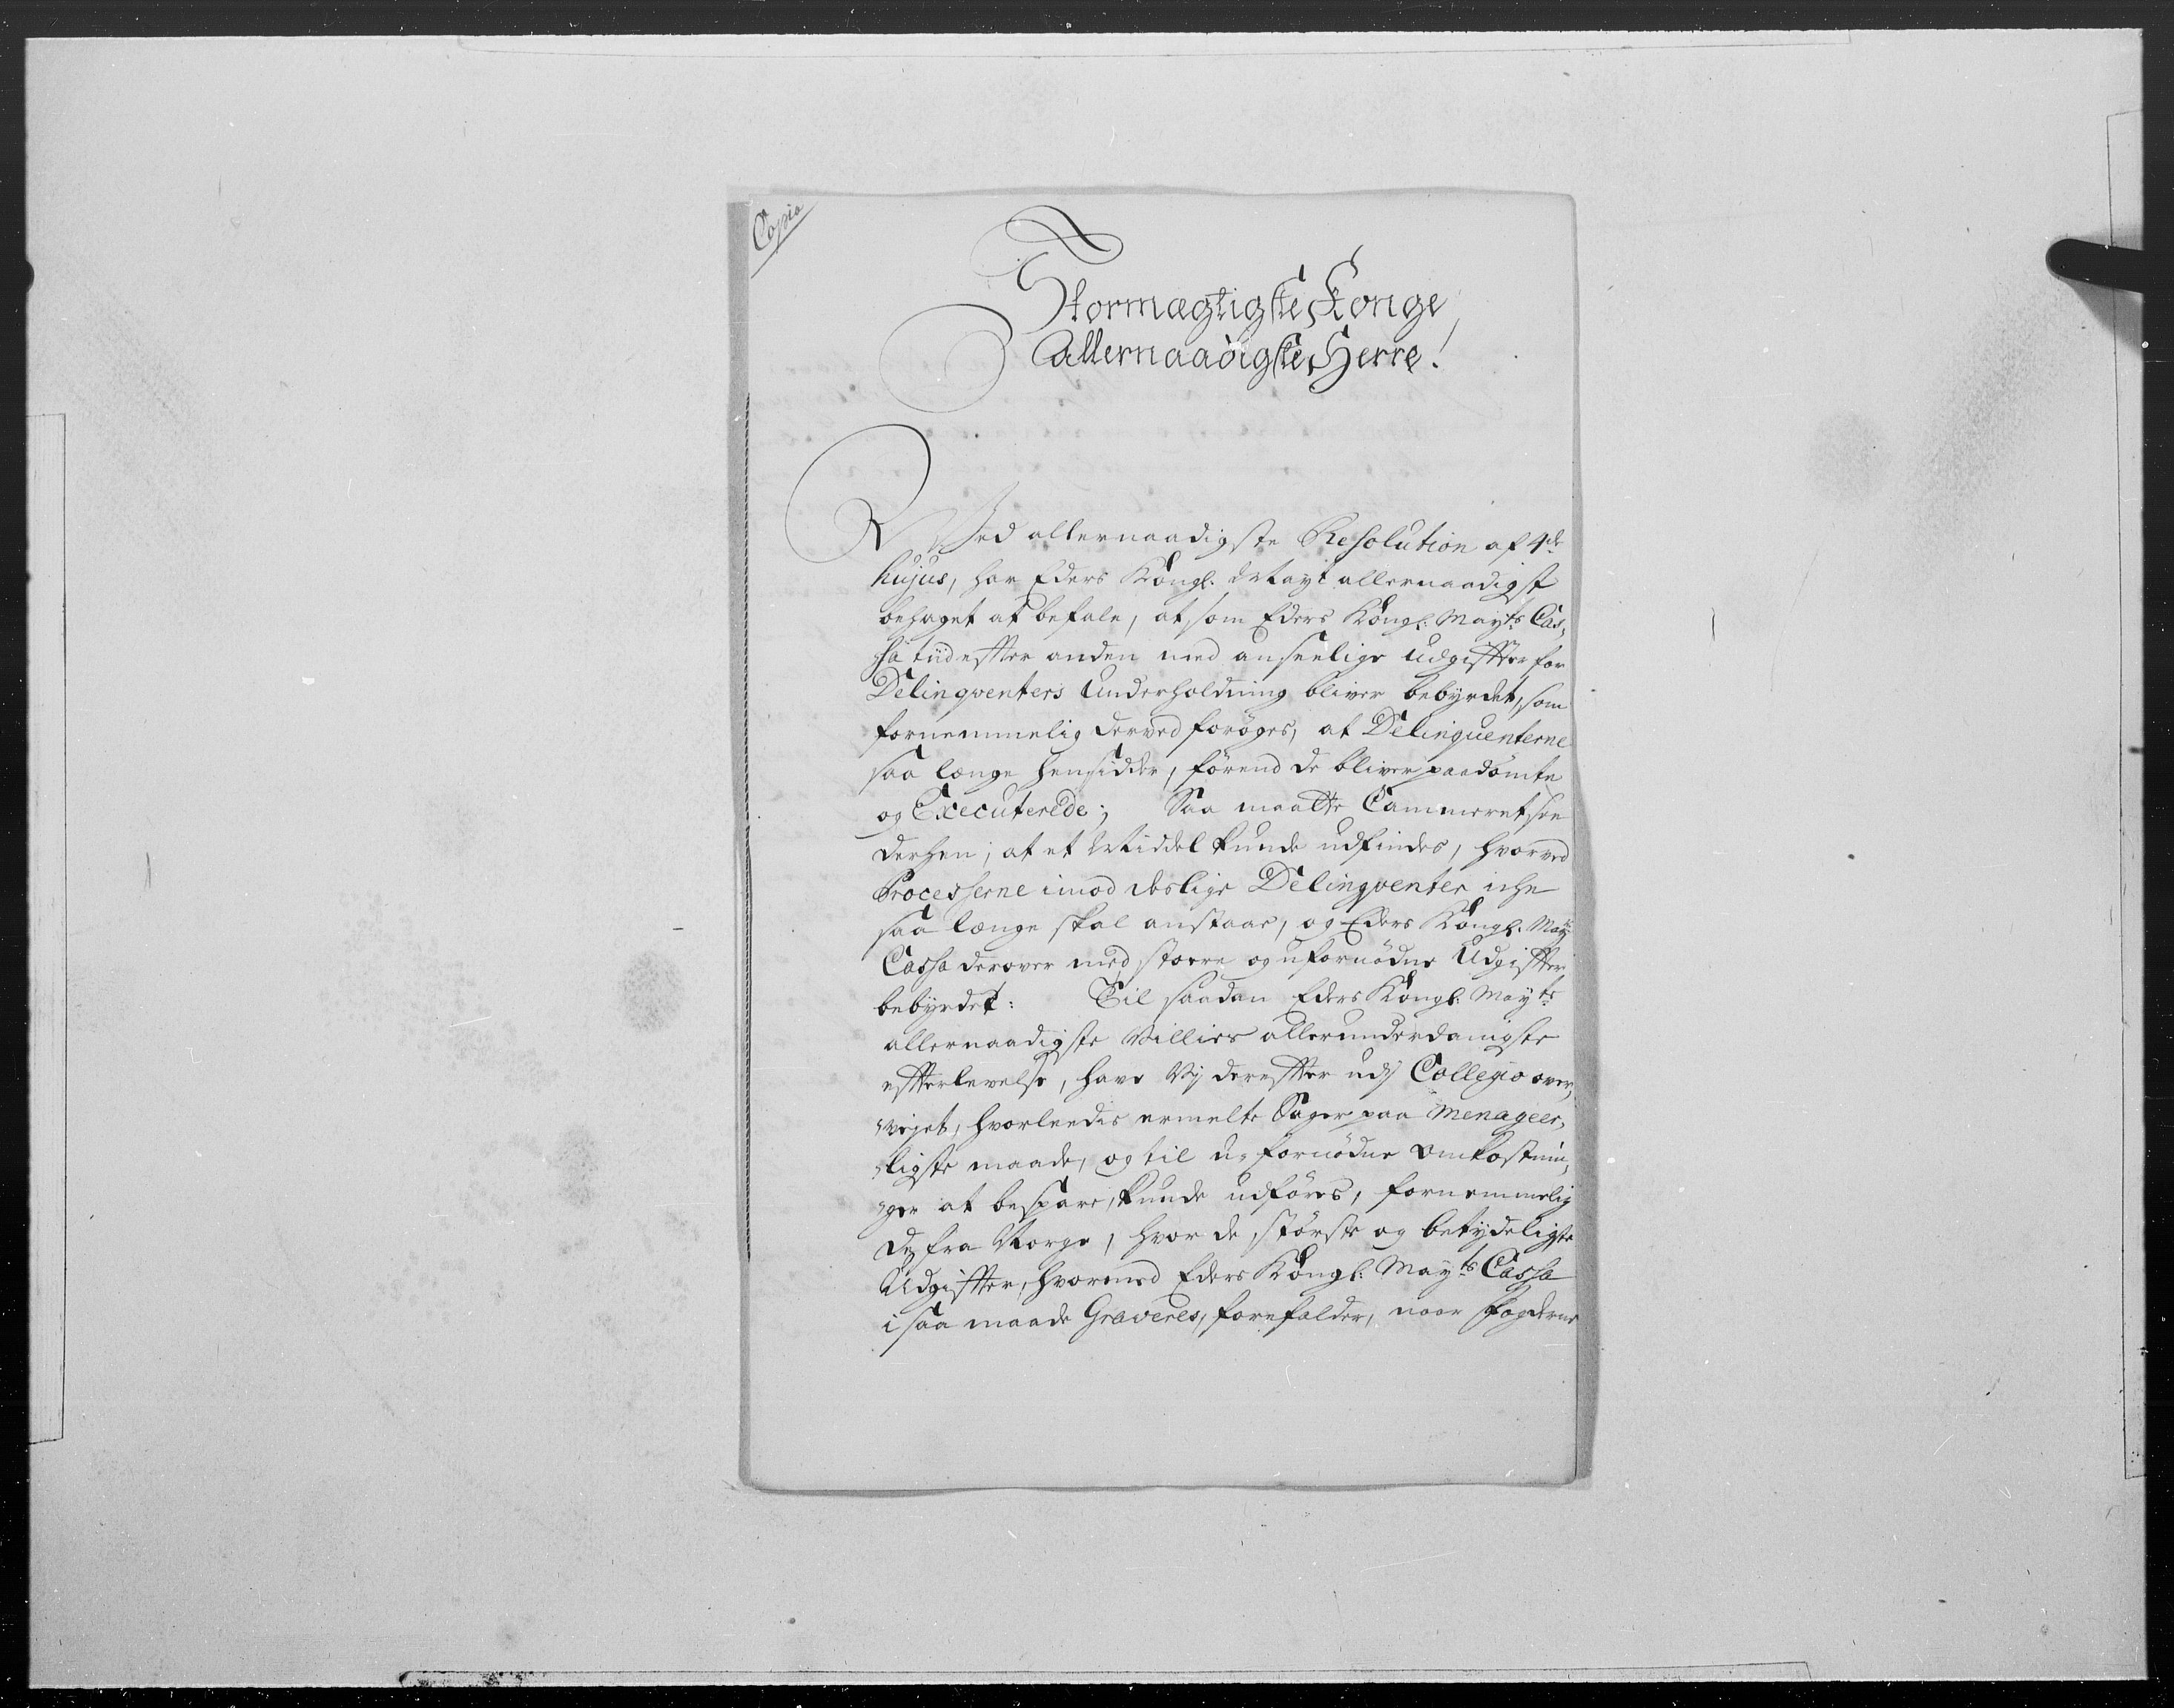 Copia
Stormægtigste Konge,
Allernaadigste Herre!
Ved allernaadigste Resolution af 4de
hujus, har Eders Kongl. Mayt allernaadigst
behaget at befale, at, som Eders Kongl: Mayts Cas,
sa tiid effter anden med anseelige Udgiffter for
Delinqventers Underholdning bliver bebyrdet, som
fornemmelig derved forøges, at Delinquenterne
saa længe hensidder, førend de bliver paadømte
og Executerede; Saa maatte Cammeret see
derhen, at et Middel kunde udfindes, hvorved
Processerne imod deslige Delinqventer iche
saa længe skal anstaae, og Eders Kongl. Mayts
Cassa derover med stoere og ufornødne Udgiffter
bebyrdet: Til saadan Eders Kongl: Mayts
allernaadigste Villies allerunderdanigste
effterlevelse, have Vy dereffter udj Collegio over,
vejet, hvorleedes ermelte Sager paa Menageer,
ligste maade, og til u-fornødne Omkostnin,
ger at bespare, kunde udføres, fornemmelig
de fra Norge, hvor de største og betydeligste
Udgiffter, hvormed Eders Kongl: Mayts Cassa
i saa maade Graveres, forefalder, naar Fogderne